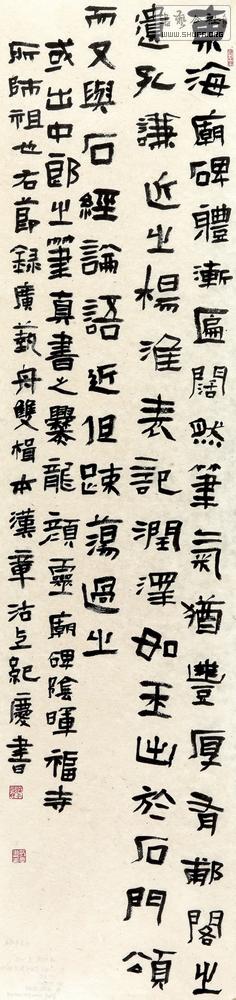 東海廟碑體漸匾闊然筆氣猶豐厚有郙閣之
遺孔謙近之楊淮表記潤澤如玉出於石門頌
而又與石經論語近但踈蕩過之
或出中郎之筆真書之爨龍顏靈廟碑陰暉福寺
所師祖也右節録廣藝舟雙楫本漢章沽上紀慶書